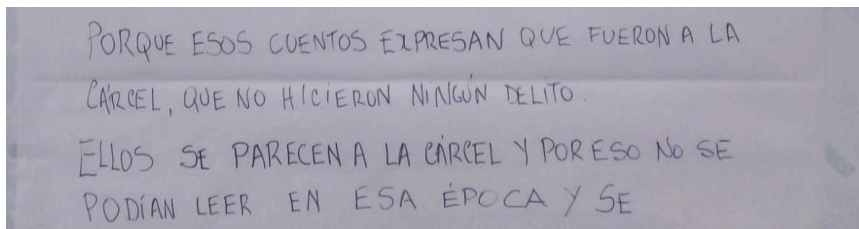 PORQUE ESOS CUENTOS EXPRESAN QUE FUERON A LA
CÁRCEL, QUE NO HICIERON NINGÚN DELITO.
ELLOS SE PARECEN A LA CÁRCEL Y POR ESO NO SE
PODÍAN LEER EN ESA ÉPOCA Y SE